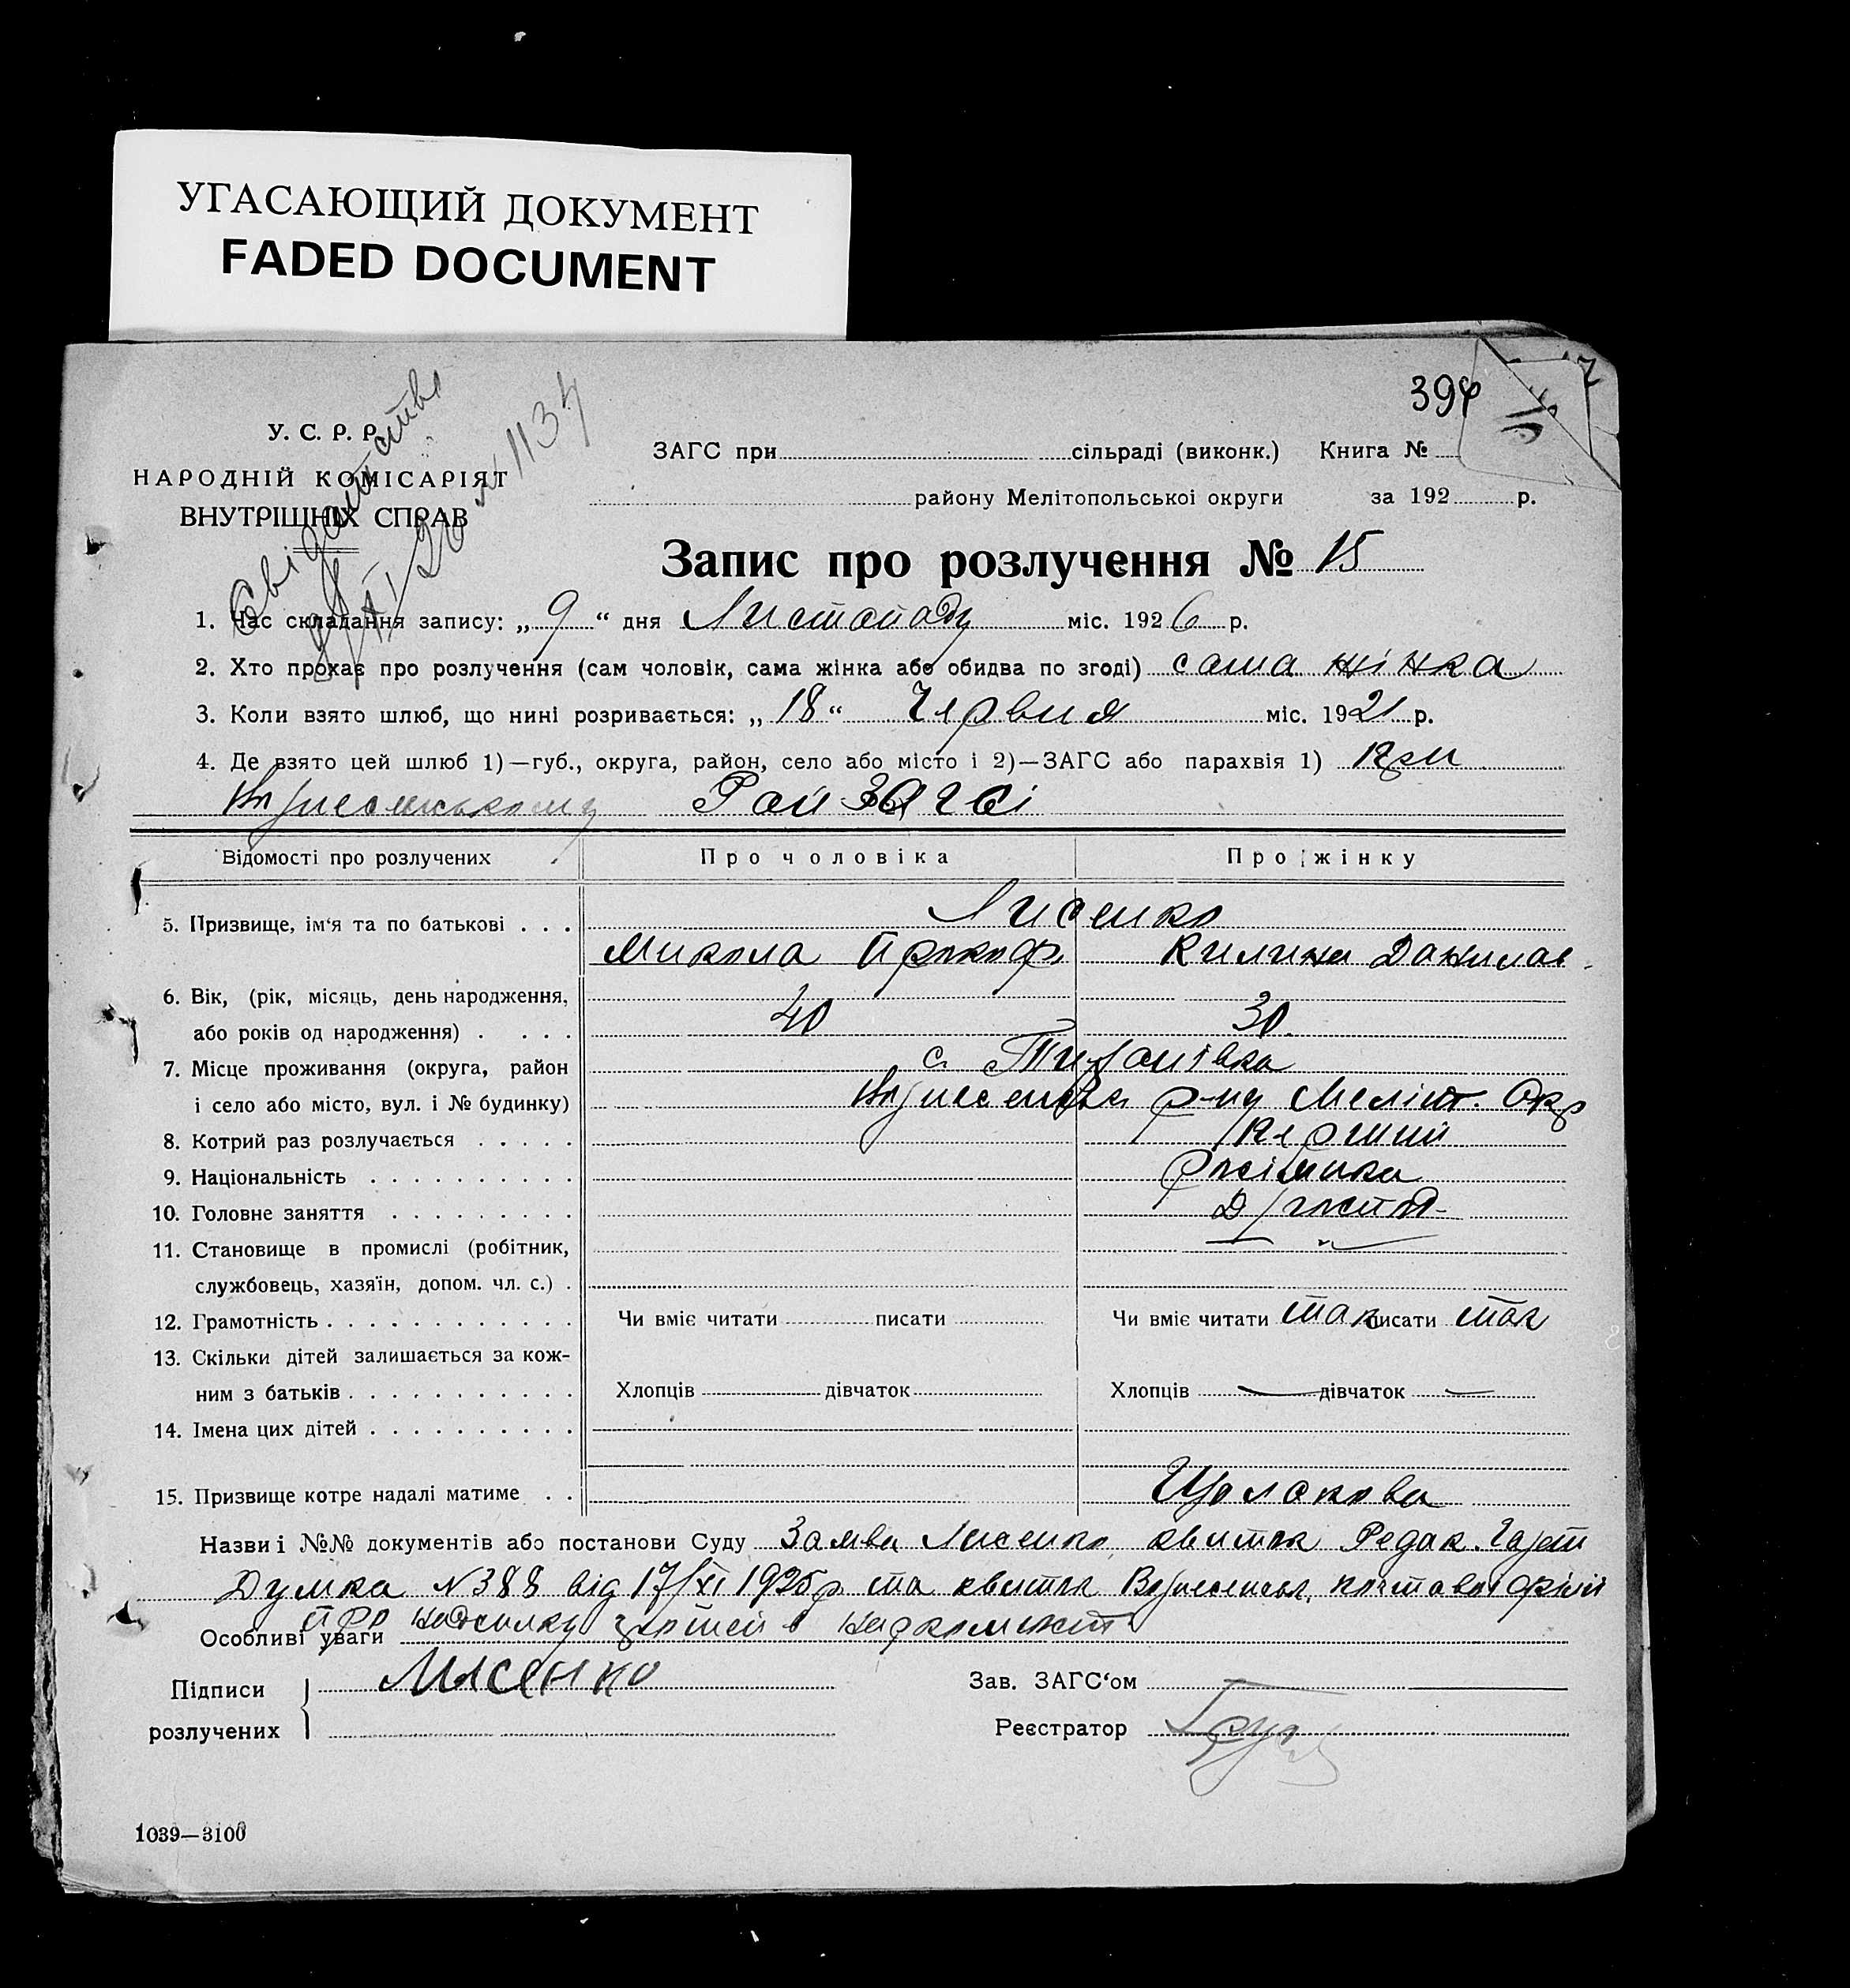 УГАСАЮЩИЙ ДОКУМЕНТ
FADED DOCUMENT
У. С. Р. Р.
НАРОДНІЙ КОМІСАРІЯТ
ВНУТРІШНІХ СПРАВ
Свідоцтво
№ 1137
ЗАГС при сільраді (виконк.) Книга №
району Мелітопольської округи за 192 р.
Запис про розлучення № 15
1. Час складання запису: „ 9 “ дня Листопаду міс. 1926 р.
2. Хто прохає про розлучення (сам чоловік, сама жінка або обидва по згоді) сама жінка
3. Коли взято шлюб, що нині розривається: „ 18 “ Червня міс. 1921 р.
4. Де взято цей шлюб 1)—губ., округа, район, село або місто і 2)—ЗАГС або парахвія 1) при
Вознесенському РайЗАГСі
Відомості про розлучених Про чоловіка Про жінку
5. Призвище, ім‘я та по батькові . . . Лисенко
Микола Прокоф. Килина Данилов.
6. Вік, (рік, місяць, день народження,
або років од народження) . . . . 40 30.
7. Місце проживання (округа, район с.
і село або місто, вул. і № будинку) Вознесенськ. р-ну Меліт. Окр
8. Котрий раз розлучається . . . . . Перший
9. Національність . . . . . . . . . .
10. Головне заняття . . . . . . . . .
11. Становище в промислі (робітник,
службовець, хазяїн, допом. чл. с.) .
12. Грамотність . . . . . . . . . . . . Чи вміє читати писати Чи вміє читати так писати так
13. Скільки дітей залишається за кож-
ним з батьків . . . . . . . . . . . Хлопців дівчаток Хлопців — дівчаток —
14. Імена цих дітей . . . . . . . . . .
15. Призвище котре надалі матиме . .
Назви і №№ документів або постанови Суду Заява Лисенко, квиток Редак. Газет
Думка №388 від 17/XI 1925р та квиток Вознесенськ. поштової філії
Особливі уваги про
Підписи Лисенко Зав. ЗАГС‘ом
розлучених Реєстратор
1039—3100